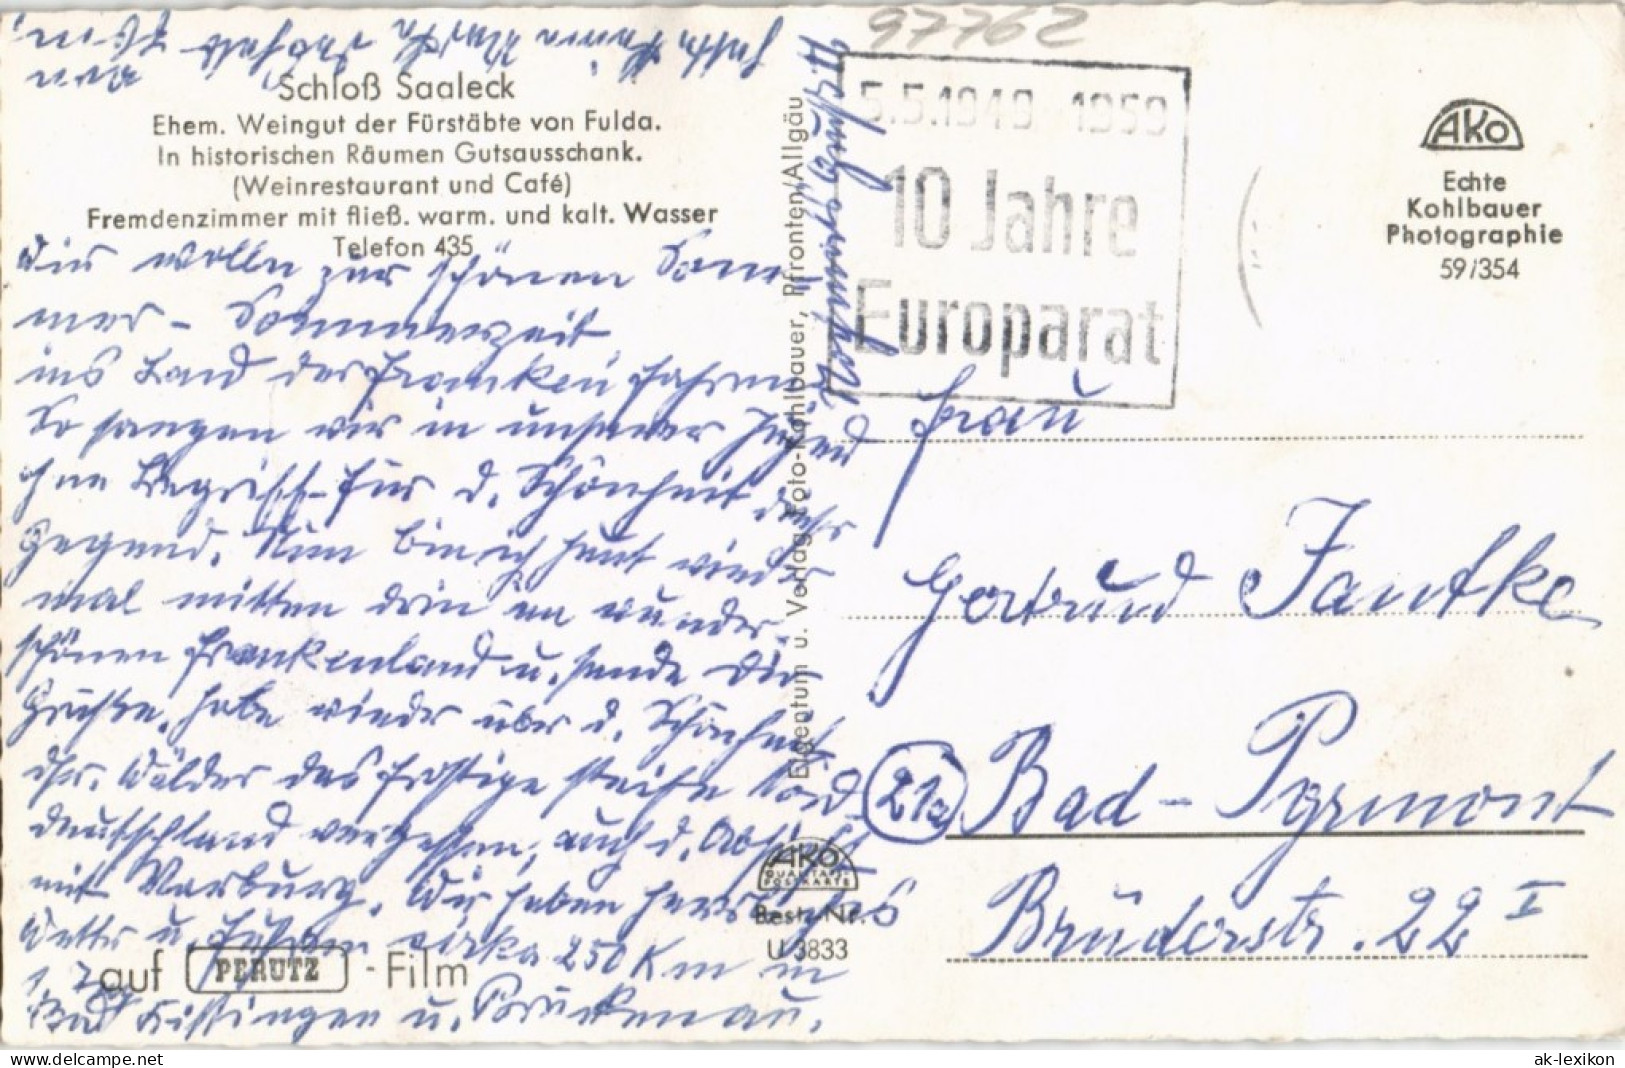 97762
Schloß Saaleck
Ehem. Weingut der Fürstäbte von Fulda.
In historischen Räumen Gutsausschank.
(Weinrestaurant und Café)
Fremdenzimmer mit fließ. warm. und kalt. Wasser
Telefon 435
Wir wolln zur schönen Som-
mer- Sommerszeit
ins Land der Franken fahren
So sangen wir in unserer Jugend
ohne Begriff für d. Schönheit dieser
Gegend. Nun bin ich heut wieder
mal mitten drin im wunder-
schönen Frankenland u. sende Dir
Grüße, habe wieder über d. Schönheit
der Wälder das frostige steife Nord-
deutschland vergessen, auch d.
mit Warburg. Wir haben herrliches
Wetter u. zirka 250 Km in
Bad Kissingen u. Brückenau.
auf PERUTZ -Film
Eigentum u. Verlag Foto-Kohlbauer, Pfronten/Allgäu
AKO
QUALITÄTS-
POSTKARTE
Best. Nr.
U 3833
5.5.1949 1959
10 Jahre
Europarat
AKO
Echte
Kohlbauer
Photographie
59/354
Frau
Gertrud Jantke
(21a) Bad-Pyrmont
Brüderstr. 22 I
ak-lexikon